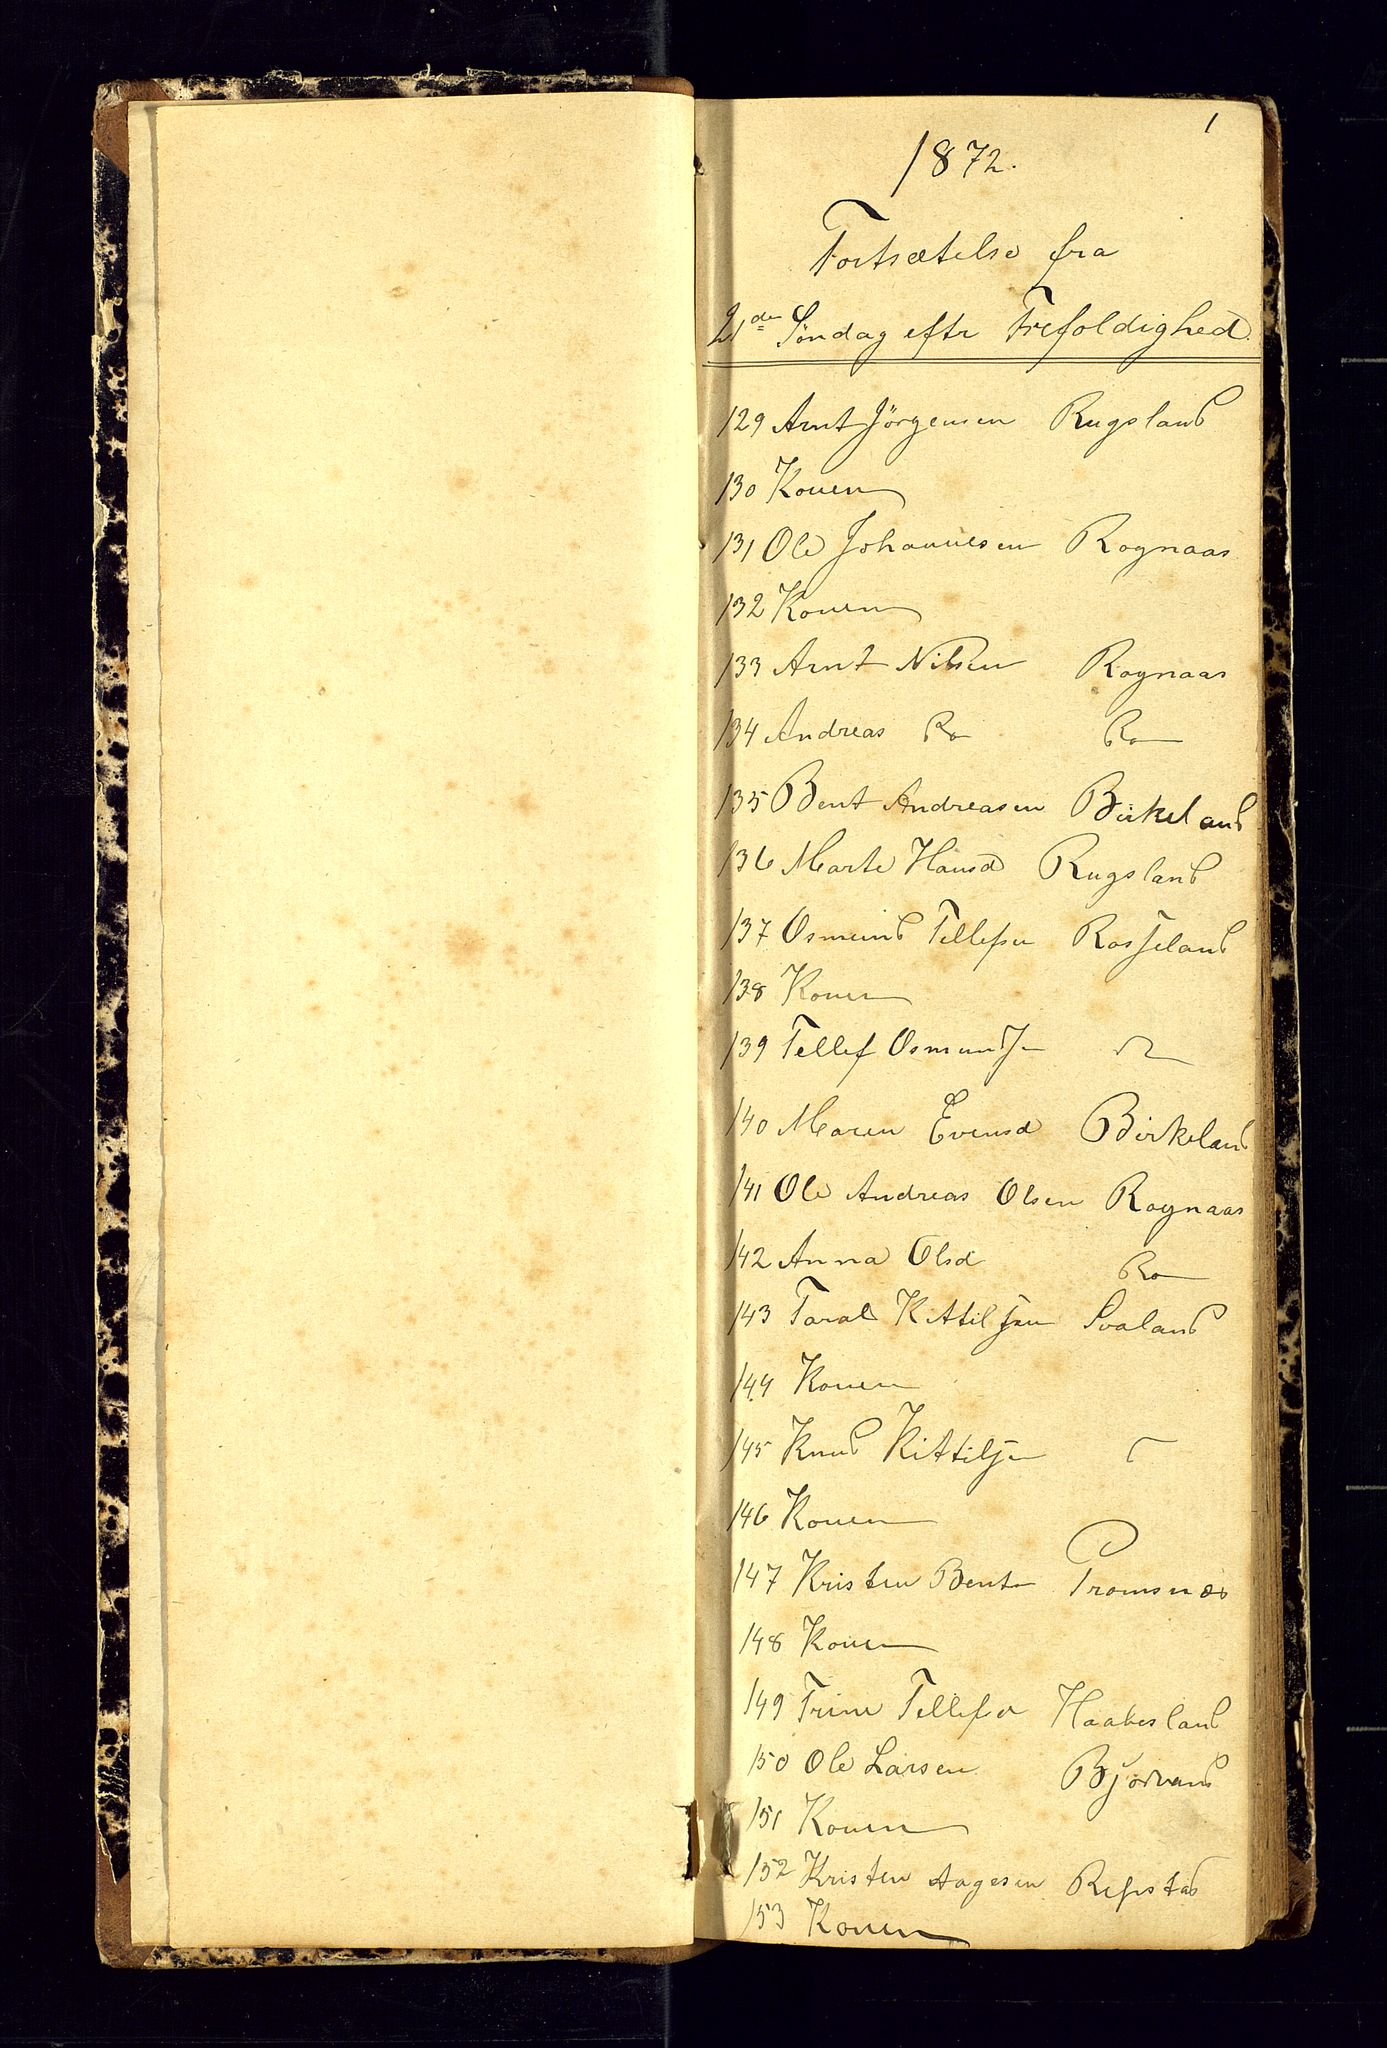 1
1872.
Fortsætelse fra
21de Søndag eftr Trefoldighed
129 Arnt Jörgensen Rugsland
130 Konen
131 Ole Johannesen Rognaas
132 Konen
133 Arnt Nilsen Rognaas
134 Andreas Do Do
135 Bent Andreasen Birkeland
136 Marte Hansd Rugsland
137 Osmund Tellefsen Rosseland
138 Konen
139 Tellef Osmundsen
140 Maren Evensd Birkeland
141 Ole Andreas Olsen Rognaas
142 Anna Olsd Do
143 Taral Kittilsen Svaland
144 Konen
145 Knud Kittilsen
146 Konen
147 Kristen Bents Tromsnæs
148 Konen
149 Trine Tellefsd Haabesland
150 Ole Larsen Bjorvand
151 Konen
152 Kristen Aagesen Repstad
153 Konen